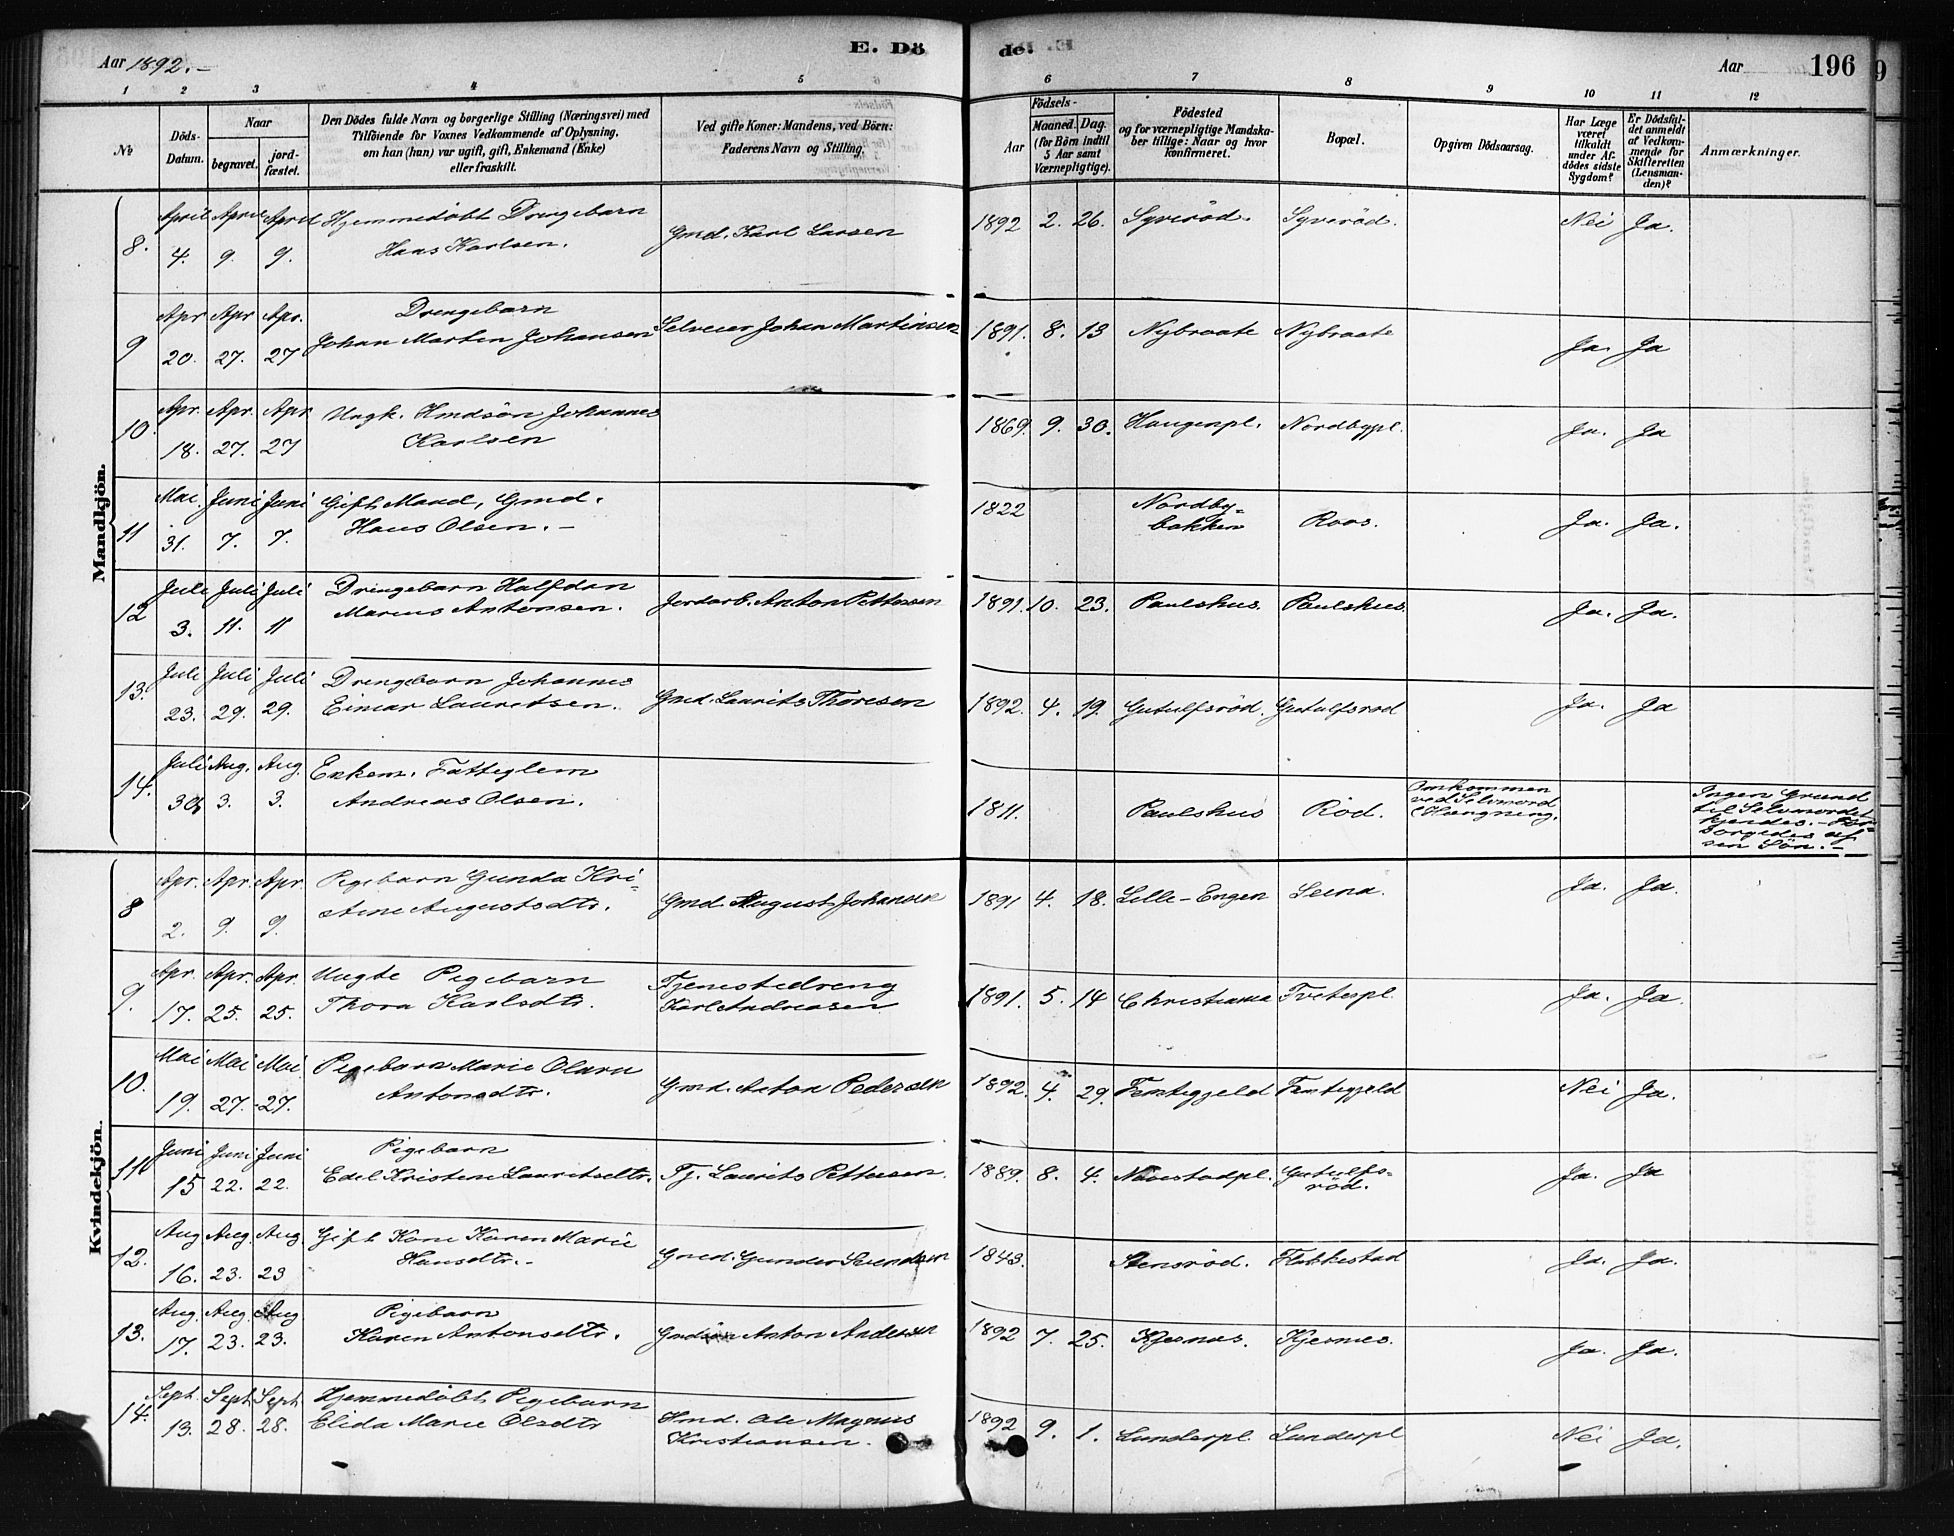 Aar 1892.-
E. Dö
de.
Aar
196
1 2 3 4 5 6 7 8 9 10 11 12
No
Döds-Datum.
Naar
begravet.
jord-fæstet.
Den Dödes fulde Navn og borgerlige Stilling (Næringsvei) med
Tilföiende for Voxnes Vedkommende af Oplysning,
om han (hun) var ugift, gift, Enkemand (Enke)
eller fraskilt.
Ved gifte Koner: Mandens, ved Börn:
Faderens Navn og Stilling.
Födsels-
Aar
Maaned. Dag.
(for Börn indtil
5 Aar samt
Værnepligtige).
Födested
og for værnepligtige Mandska-
ber tillige: Naar og hvor
konfirmeret.
Bopæl.
Opgiven Dödsaarsag.
Har Læge
været
tilkaldt
under Af-
dödes sidste
Sygdom?
Er Dödsfal-
det anmeldt
af Vedkom-
mende for
Skifteretten
(Lensman-
den)?
Anmærkninger.
Mandkjön.
8. April 4. April 9. April 9. Hjemmedöbt Drengebarn
Hans Karlsen. Gmd. Karl Larsen 1892 2. 26. Syveröd. Syveröd. Nei Ja.
9 Apr 20. Apr 27. Apr. 27 Drengebarn
Johan Marten Johansen Selveier Johan Martinsen 1891. 8. 13 Nybraate Nybraate Ja. Ja
10. Apr. 18. Apr. 27. Apr 27 Ungk. Hmdsön Johannes
Karlsen 1869. 9. 30. Haugenpl. Nordbypl. Ja. Ja
11 Mai. 31. Juni 7. Juni 7. Gift Mand, Gmd.
Hans Olsen. - 1822 Nordby=
bakken Roos. Ja. Ja.
12 Juli 3. Juli 11. Juli 11 Drengebarn Halfdan
Marius Antonsen. Jordarb. Anton Pettersen 1891. 10. 23. Paulshus. Paulshus Ja. Ja.
13. Juli 23. Juli 29. Juli 29. Drengebarn Johannes
Einar Lauritsen. Gmd. Laurits Thoresen 1892. 4. 19. Gutulfsröd Gutulfsröd Ja. Ja
14. Juli 30. Aug. 3. Aug. 3. Enkem. Fattiglem
Andreas Olsen. 1811. Paulshus Röd. Omkommen
ved Selvmord
(Hængning. Ingen Grund
til Selvmordet
kjendes. - For-
sörgedes af
sin Sön. -
Kvindekjön.
8 Apr. 2. Apr. 9. Apr. 9. Pigebarn Gunda Kri-
stine Augustsdtr. Gmd. August Johansen 1891 4. 18. Lille-Engen Ja. Ja.
9. Apr. 17. Apr. 25. Apr. 25. Uægte Pigebarn
Thora Karlsdtr. Tjenestedreng
Karl Andreasen 1891. 5. 14 Christiania Tvetespl. Ja. Ja.
10. Mai 19. Mai 27. Mai. 27. Pigebarn Marie Olava
Antonsdtr. Gmd. Anton Pedersen 1892. 4. 29. Nei Ja.
11 Juni 15 Juni 22. Juni 22. Pigebarn
Edel Kristine Lauritsdtr. Tj. Laurits Pettersen. 1889. 8. 4. Navestadpl. Gutulfs=
röd. Ja. Ja
12. Aug 16. Aug. 23. Aug. 23 Gift Kone Karen Marie
Hansdtr. - Gmd. Gunder Svendsen 1843. Stensröd. Flakkestad Ja. Ja.
13. Aug. 17. Aug. 23. Aug 23. Pigebarn
Karen Antonsdtr. Gmdsön Anton Andersen 1892 7. 25. Kjernes. Kjernes. Ja. Ja.
14. Sept. 13. Sept 28. Sept 28. Hjemmedöbt Pigebarn
Elida Marie Olsdtr Hmd. Ole Magnus
Kristiansen. 1892 9. 1. Lunderpl. Lunderpl Nei Ja.